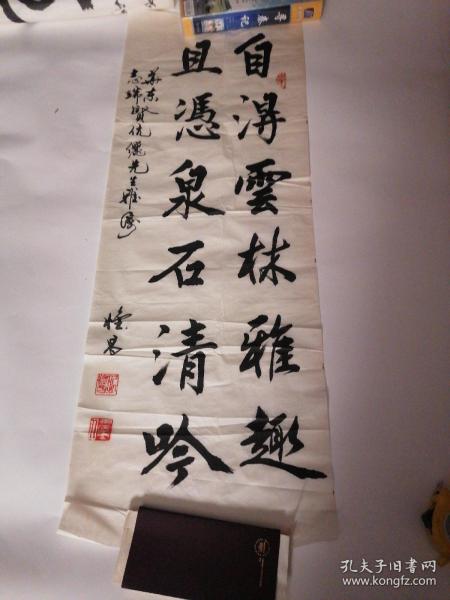 自淂雲林雅趣
且憑泉石清吟
華东
志瑋賢伉儷先生雅属
孔夫子旧书网
www.kongfz.com